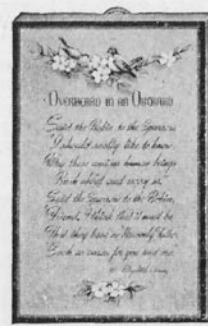 Overheard in an Orchard
Said the Robin to the Sparrow
I should really like to know
Why these anxious human beings
Rush about and worry so
Said the Sparrow to the Robin,
Friend, I think that it must be
That they have no Heavenly Father
Such as cares for you and me.
Elizabeth